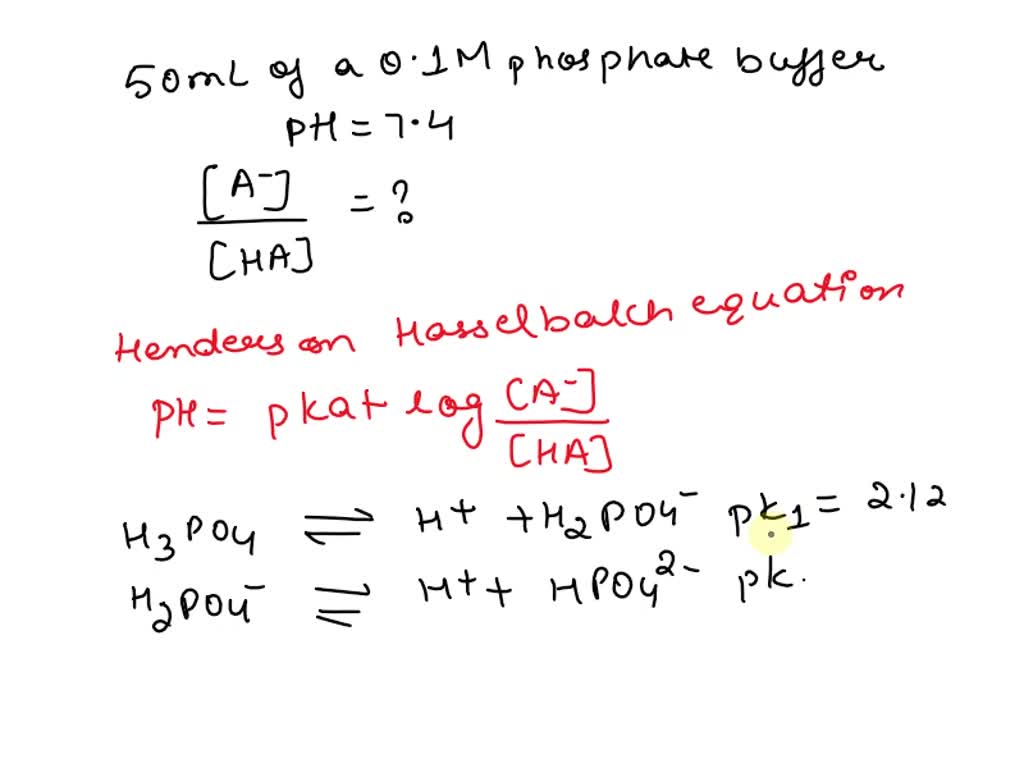 50mL of a 0.1M phosphate buffer
PH = 7.4
[A⁻]
/
[HA] = ?
Henderson Hasselbalch equation
PH = pkat log [A⁻]
/
[HA]
H₃PO₄ ⇌ H⁺ + H₂PO₄⁻ pk₁ = 2.12
H₂PO₄⁻ ⇌ H⁺ + HPO₄²⁻ pk.